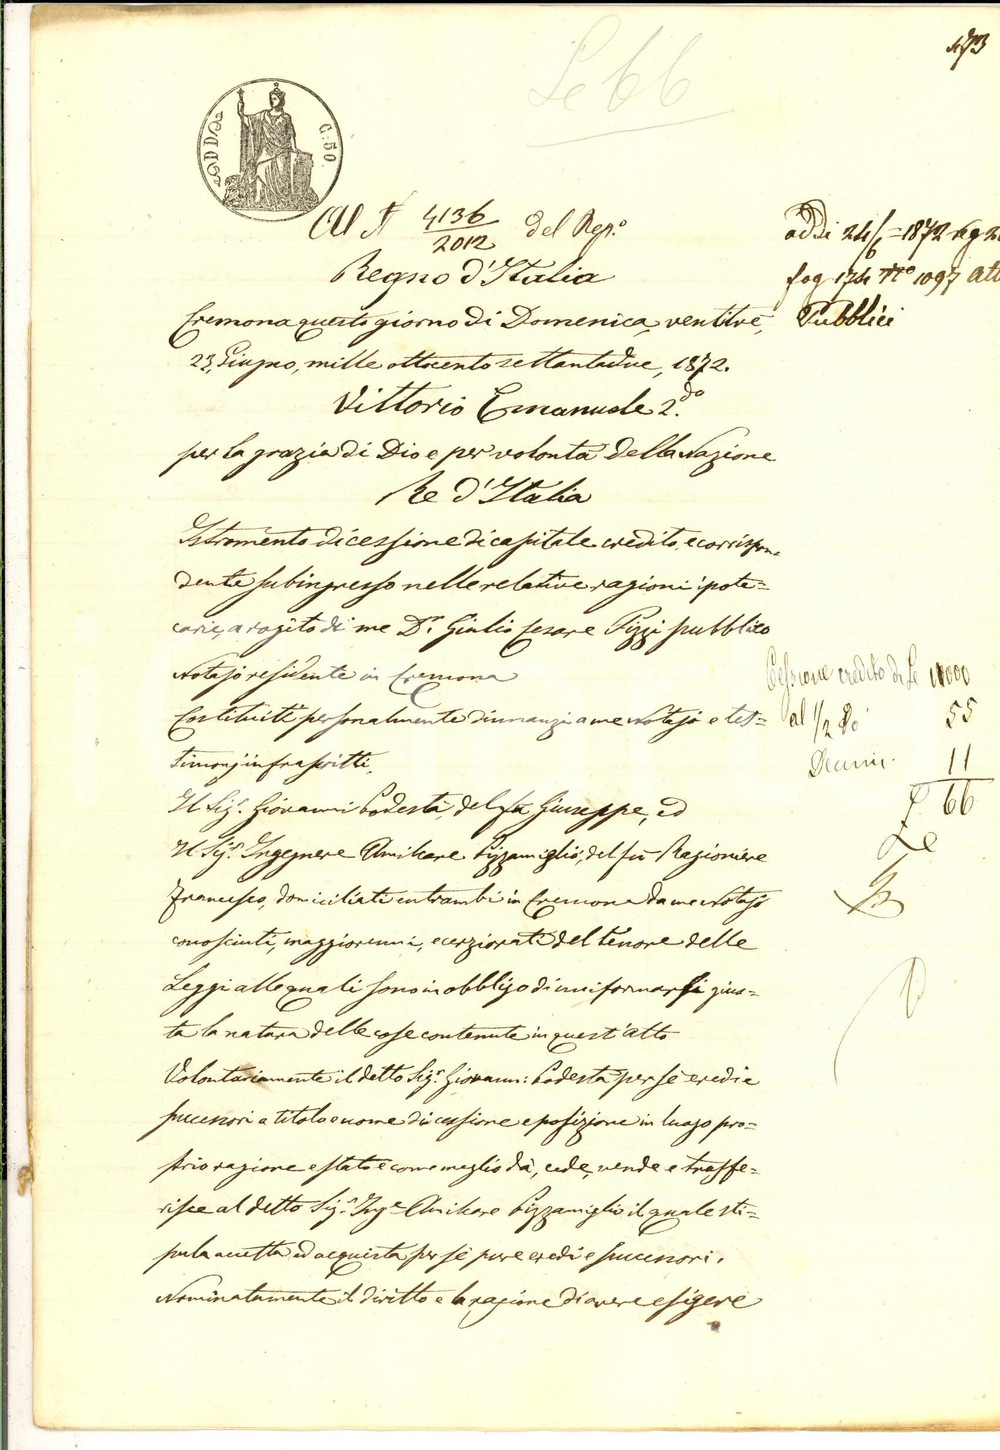 473
Le 66
C. 50
Al N° 4136/2012 del Rep.°
Regno d'Italia
Cremona questo giorno di Domenica, ventitrè,
23, Giugno, mille ottocento settantadue, 1872.
Vittorio Emanuele 2.do
per la grazia di Dio e per volontà della Nazione
Re d'Italia
Istromento di cessione di capitale credito, e corrispon-
dente subingresso nelle relative ragioni ipote=
carie, a rogito di me D.r Giulio Cesare Pizzi pubblico
Notajo residente in Cremona
Costituiti personalmente dinnanzi a me Notajo e tes=
timonj infrascritti,
Il Sig.r Giovanni Podestà, del fu Giuseppe, ed
Il Sig.r Ingegnere Amilcare Pizzamiglio, del fu Ragioniere
Francesco, domiciliati entrambi in Cremona da me Notajo
conosciuti, maggiorenni, e cerziorati del tenore delle
Leggi alle quali sono in obbligo di uniformarsi gius=
ta la natura delle cose contenute in quest'atto
Volontariamente il detto Sig.r Giovanni Podestà per sè eredi e
successori a titolo e nome di cessione e posizione in luogo pro=
prio ragione e stato e come meglio dà, cede, vende e trasfe=
risce al detto Sig.r Ing.e Amilcare Pizzamiglio il quale sti=
pula accetta ed acquista per sè pure eredi e successori.
Nominatamente il diritto e la ragione di avere e esigere
addì 24/6 = 1872 Reg 2
fog 174 N° 1097 atti
Pubblici
Cessione credito di Le 11000
al 1/2 %
55
Decimi 11
£ 66